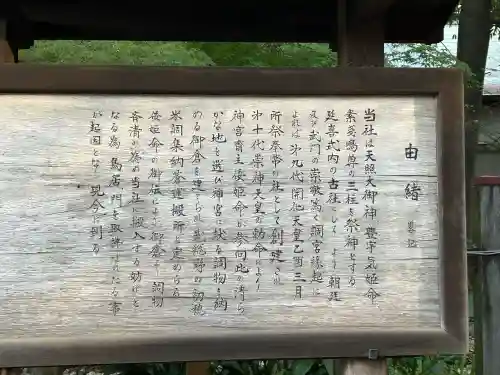 由緒 略記
当社は天照大御神 豊宇気姫命
素盞嗚尊の三柱を祭神とする
延喜式内の古社にして より朝廷
及び武門の崇敬篤く調宮縁起に
よれば 第九代開化天皇乙酉三月
所祭奉幣の社として創建され
第十代崇神天皇の勅命により
神宮斎主倭姫命が参向此の清ら
かな地を選び神宮に献る調物を納
める御倉を建てられ 武総野の初穂
米調集納蔵運搬所と定めらる
倭姫命の御伝により 御倉より調物
斉清の為め当社に搬入する妨げと
なる為 鳥居門を取拂はれたる事
が起因となり 現今に到る